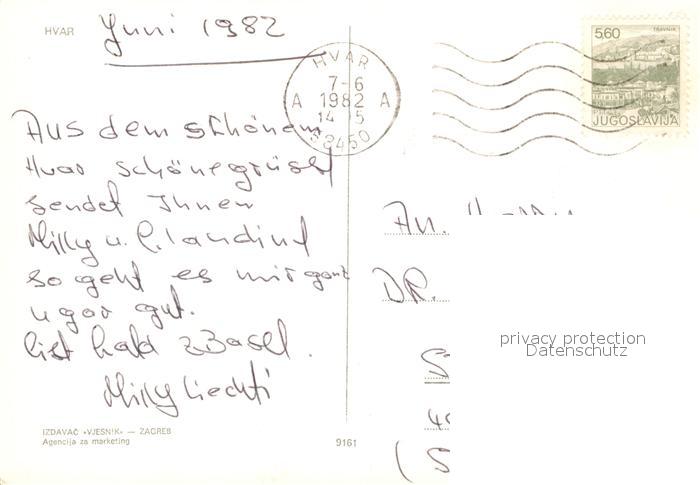 HVAR
Juni 1982
HVAR
7-6
A 1982 A
14 15
58450
5,60
TRAVNIK
JUGOSLAVIJA
Aus dem schönem
Hvar schöne grüssl
sendet Ihnen
Milly u.
so geht es mir ganz
u gar gut.
bald z Basel.
Milly Liechti
An.
DR.
privacy protection
Datenschutz
IZDAVAČ »VJESNIK« — ZAGREB
Agencija za marketing
9161